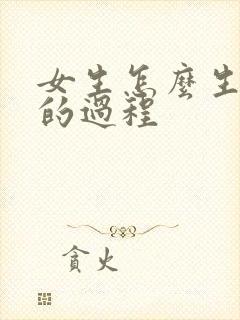 女生怎麼生
的過程
貪火